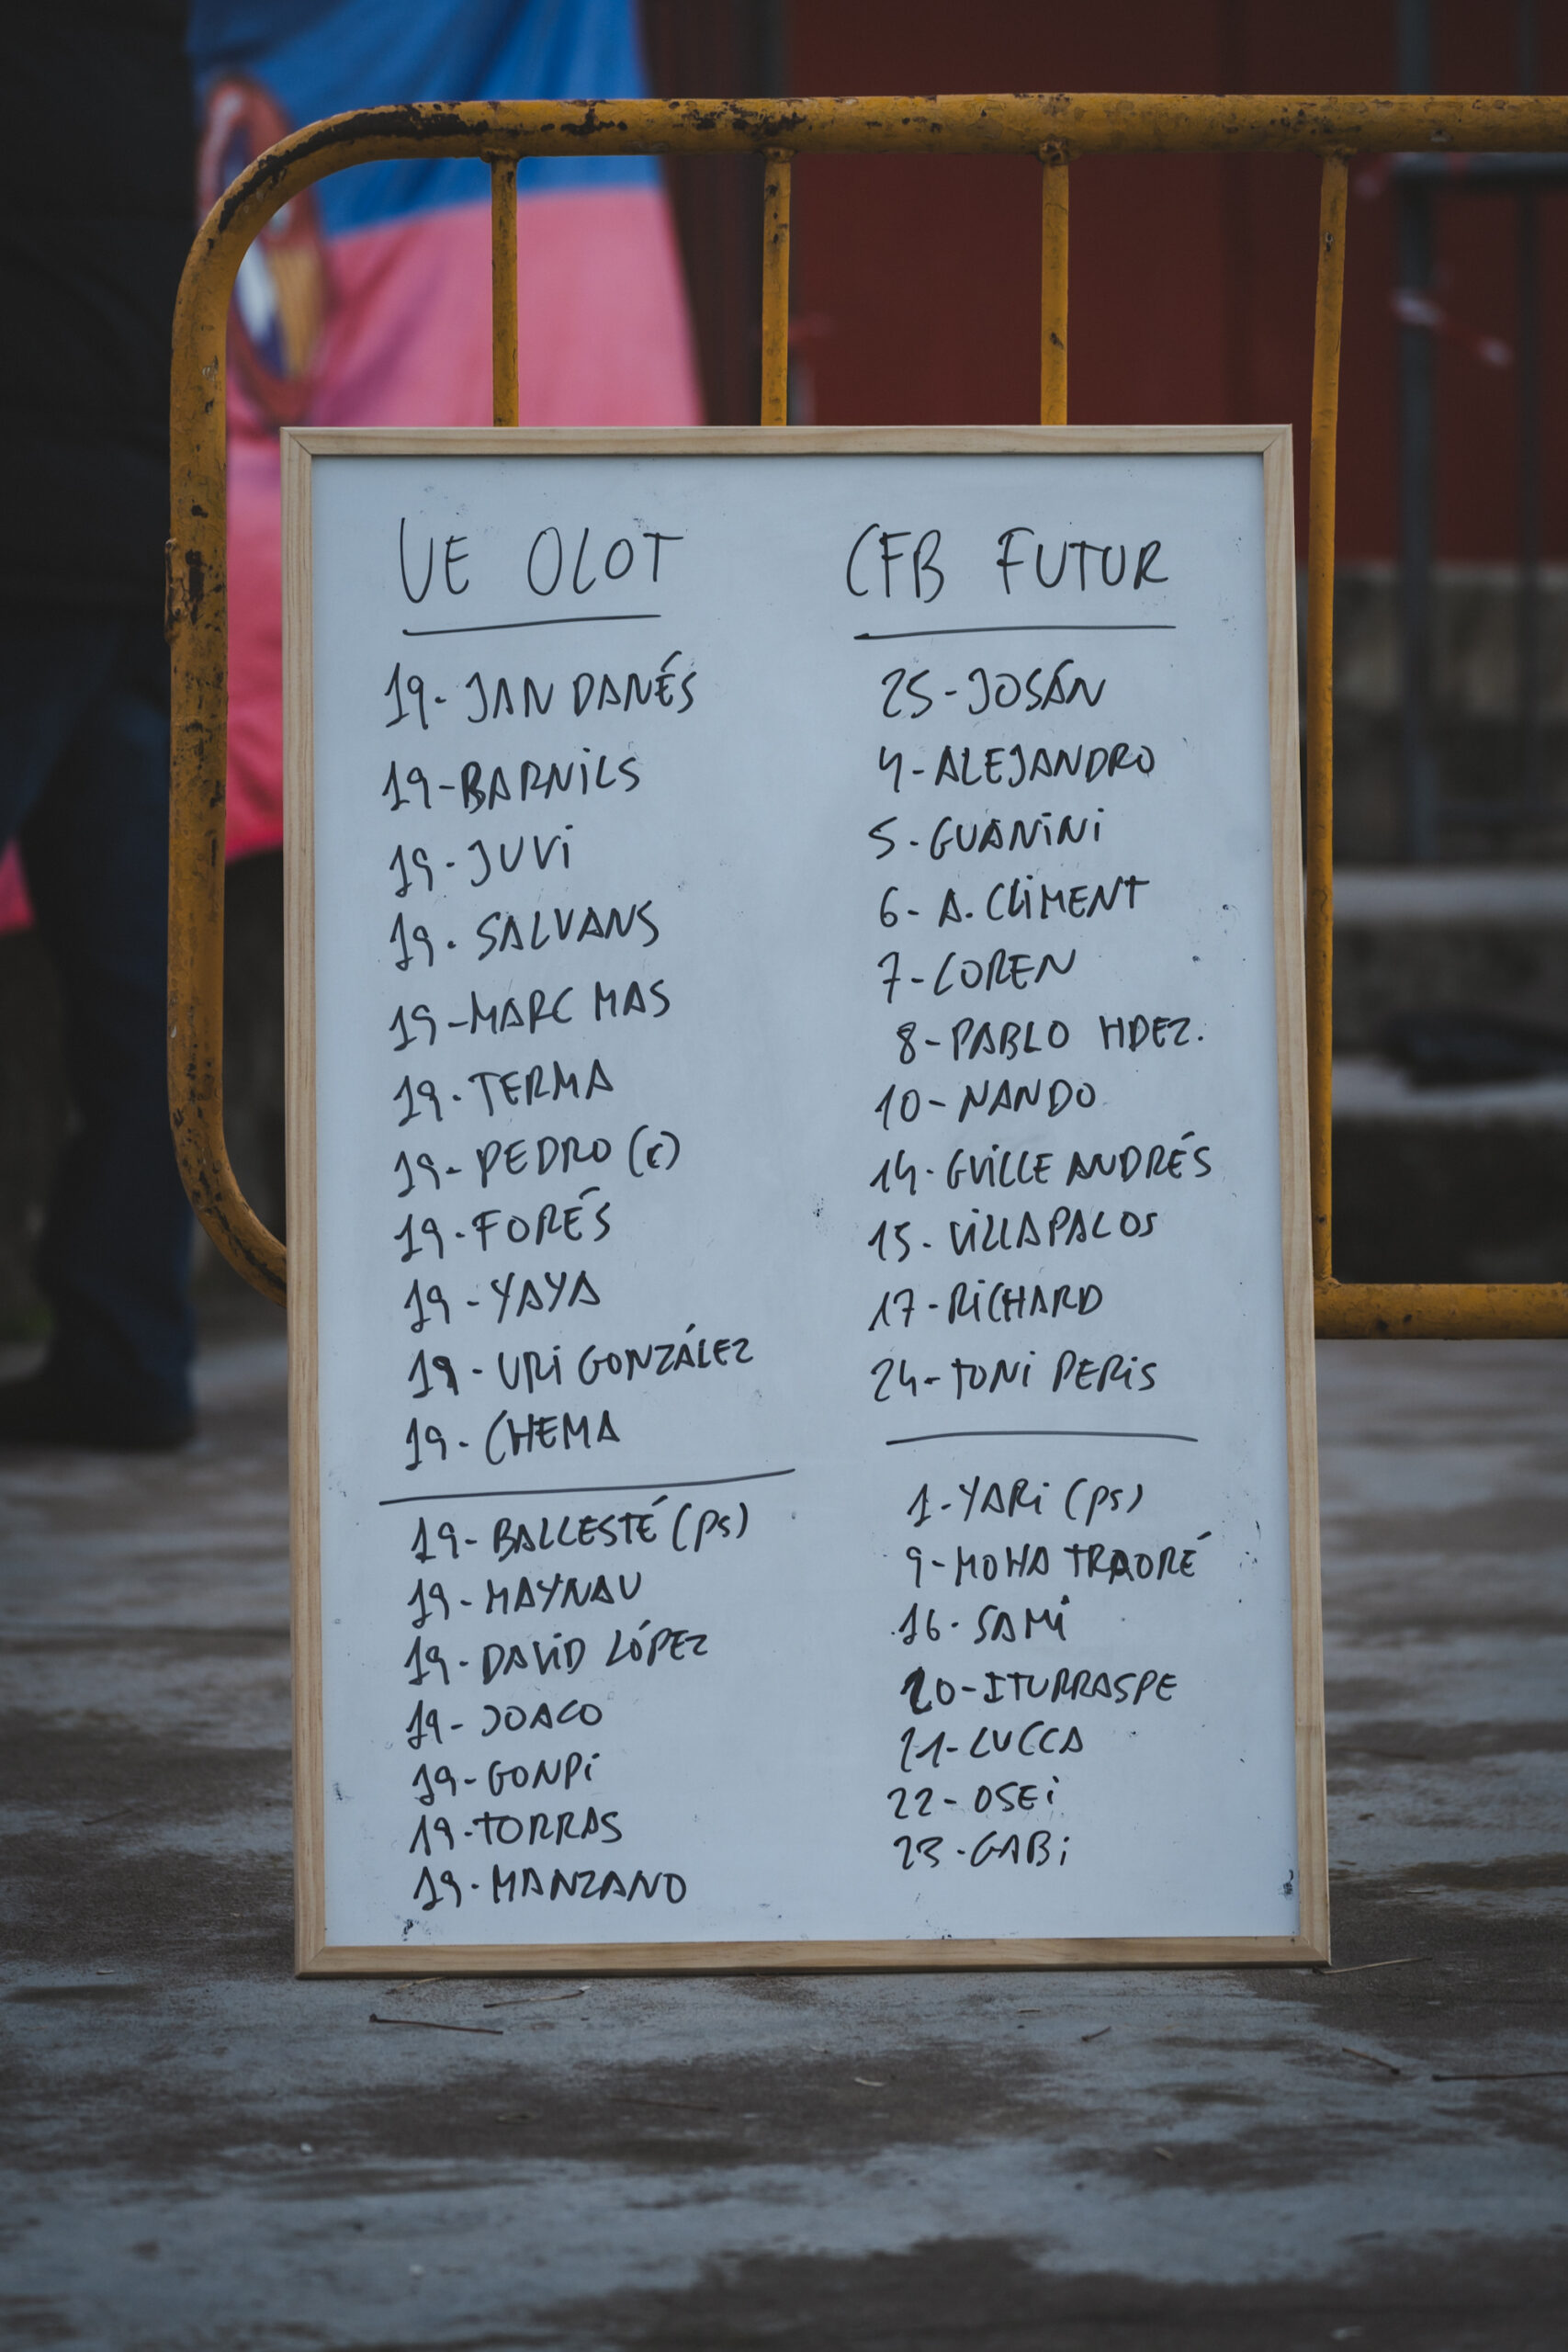 UE OLOT
19-JAN DANÉS
19-BARNILS
19-JUVI
19-SALVANS
19-MARC MAS
19-TERMA
19-PEDRO (c)
19-FORÉS
19-YAYA
19-URI GONZÁLEZ
19-CHEMA
19-BALLESTÉ (ps)
19-MAYNAU
19-DAVID LÓPEZ
19-JOACO
19-GONPI
19-TORRAS
19-MANZANO
CFB FUTUR
25-JOSÁN
4-ALEJANDRO
5-GUANINI
6-A. CLIMENT
7-LOREN
8-PABLO HDEZ.
10-NANDO
14-GUILLE ANDRÉS
15-VILLAPALOS
17-RICHARD
24-TONI PERIS
1-YARI (ps)
9-MOHA TRAORÉ
16-SAMI
20-ITURRASPE
21-LUCCA
22-OSEI
23-GABI